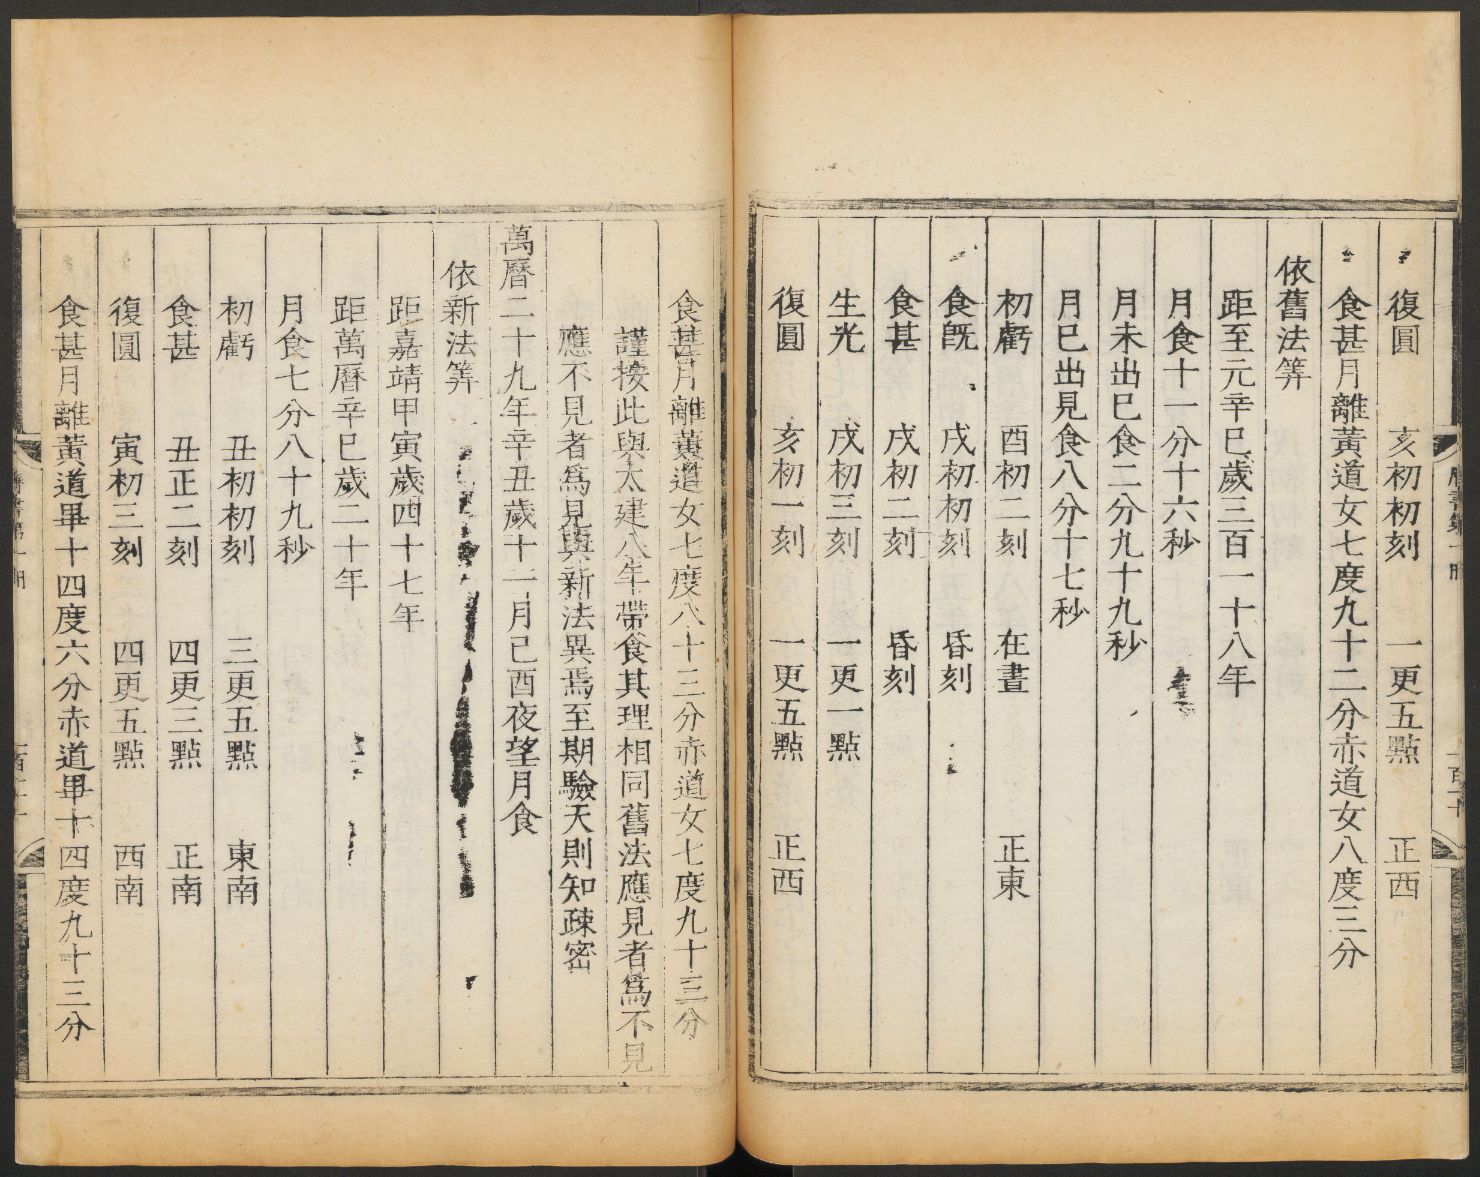 復圓　亥初初刻　一更五點　正西
食甚月離黃道女七度九十二分赤道女八度三分
依舊法筭
距至元辛巳歲三百一十八年
月食十一分十六秒
月未出已食二分九十九秒
月已出見食八分十七秒
初虧　酉初二刻　在晝　正東
食旣　戌初初刻　昏刻
食甚　戌初二刻　昏刻
生光　戌初三刻　一更一點
復圓　亥初一刻　一更五點　正西
食甚月離黃道女七度八十三分赤道女七度九十三分
謹按此與太建八年帶食其理相同舊法應見者爲不見
應不見者爲見與新法異焉至期驗天則知疎密
萬曆二十九年辛丑歲十一月己酉夜望月食
依新法筭
距嘉靖甲寅歲四十七年
距萬曆辛巳歲二十年
月食七分八十九秒
初虧　丑初初刻　三更五點　東南
食甚　丑正二刻　四更三點　正南
復圓　寅初三刻　四更五點　西南
食甚月離黃道畢十四度六分赤道畢十四度九十三分